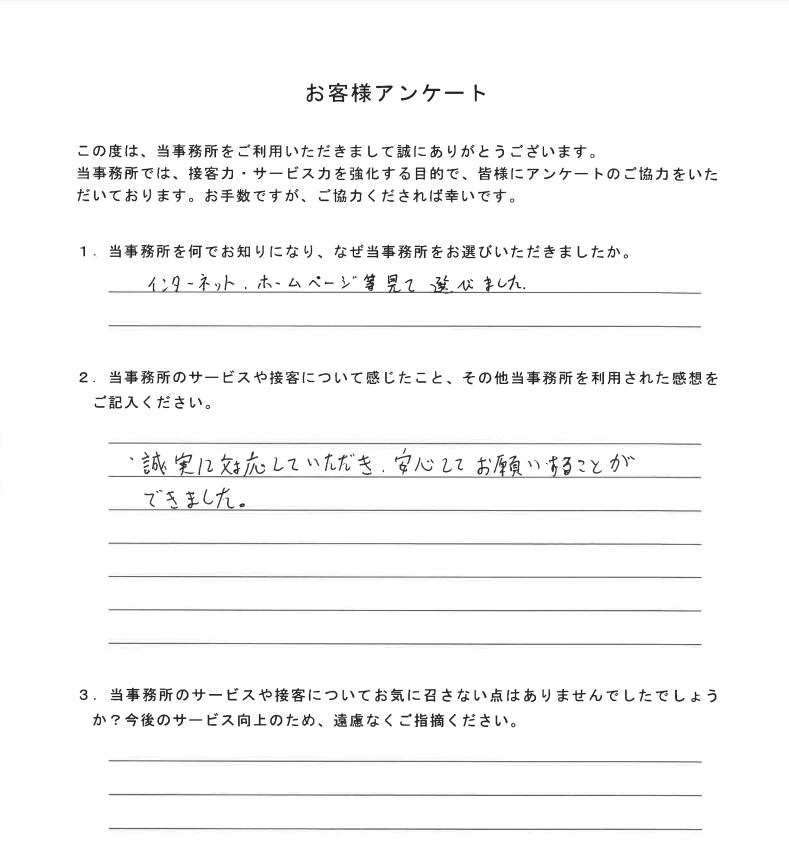 お客様アンケート
この度は、当事務所をご利用いただきまして誠にありがとうございます。
当事務所では、接客力・サービス力を強化する目的で、皆様にアンケートのご協力をいた
だいております。お手数ですが、ご協力くだされば幸いです。
１．当事務所を何でお知りになり、なぜ当事務所をお選びいただきましたか。
インターネット．ホームページ等見て選びました．
２．当事務所のサービスや接客について感じたこと、その他当事務所を利用された感想を
ご記入ください。
・誠実に対応していただき．安心してお願いすることが
できました。
３．当事務所のサービスや接客についてお気に召さない点はありませんでしたでしょう
か？今後のサービス向上のため、遠慮なくご指摘ください。